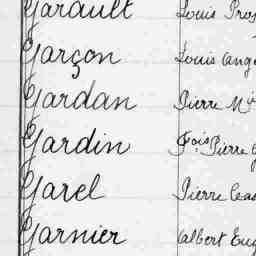 Garault Louis
Garçon Louis
Gardan Pierre
Gardin Fois Pierre
Garel Pierre
Garnier Albert